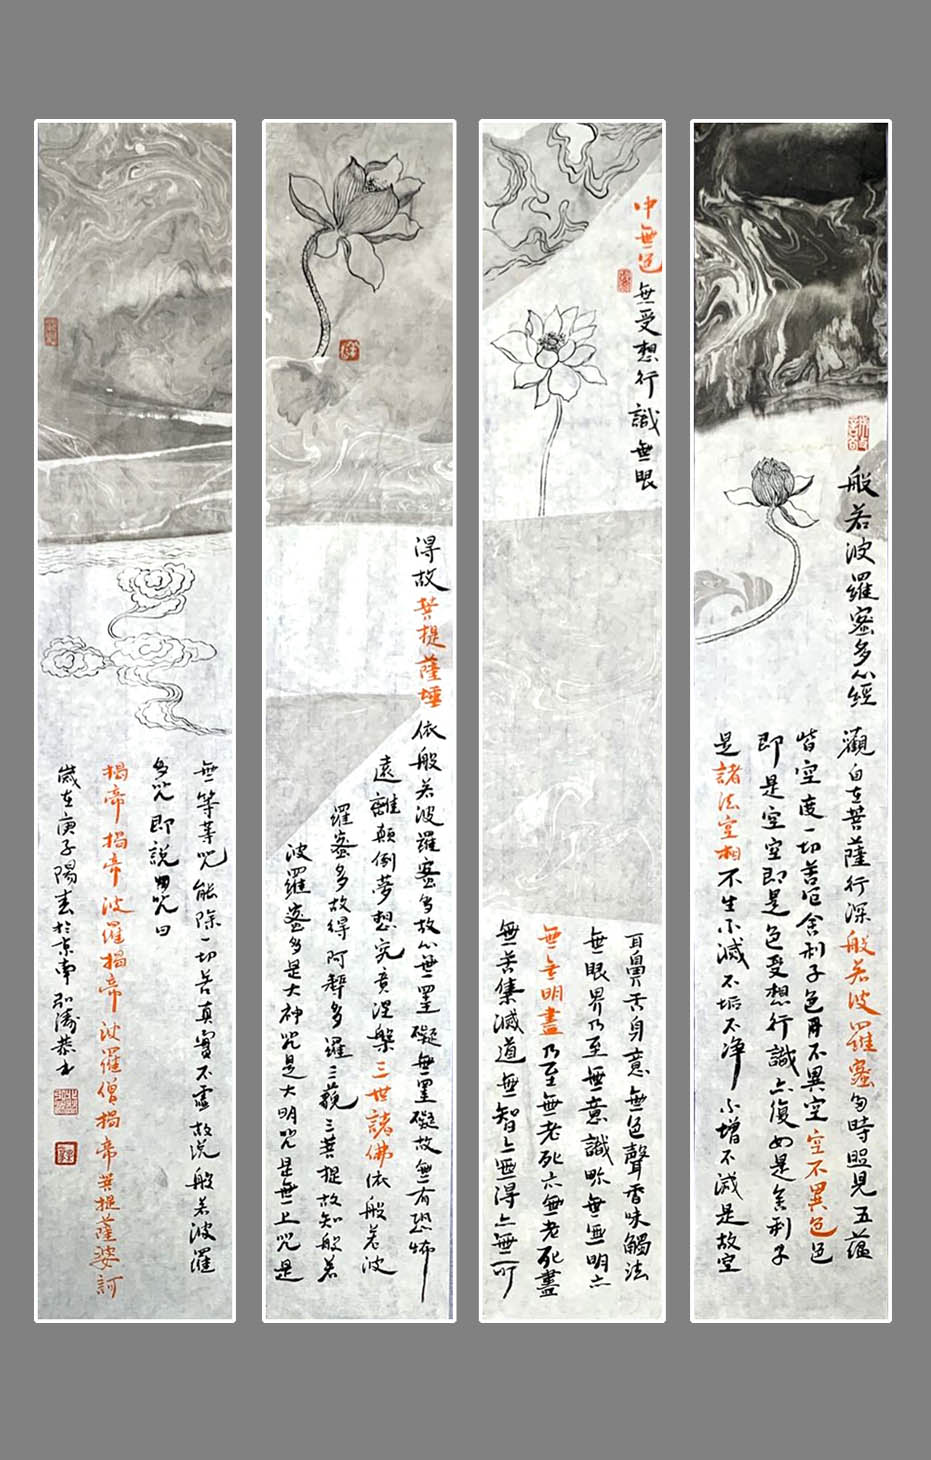 般若波羅蜜多心經
觀自在菩薩行深般若波羅蜜多時照見五蘊
皆空度一切苦厄舍利子色不異空空不異色色
即是空空即是色受想行識亦復如是舍利子
是諸法空相不生不滅不垢不淨不增不減是故空
中無色無受想行識無眼
耳鼻舌身意無色聲香味觸法
無眼界乃至無意識界無無明亦
無無明盡乃至無老死亦無老死盡
無苦集滅道無智亦無得亦無所
得故菩提薩埵依般若波羅蜜多故心無罣礙無罣礙故無有恐怖
遠離顛倒夢想究竟涅槃三世諸佛依般若波
羅蜜多故得阿耨多羅三藐三菩提故知般若
波羅蜜多是大神咒是大明咒是無上咒是
無等等咒能除一切苦真實不虛故說般若波羅
多咒即說咒曰
揭帝揭帝波羅揭帝波羅僧揭帝菩提薩婆訶
歲在庚子陽春於京南 濤恭書